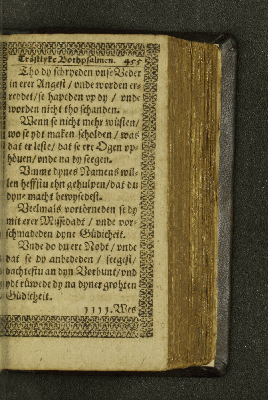 Tröstlyke Bothpsalmen. 455
Tho dy schryeden vnse Veder
in erer Angest / vnde worden er-
reddet / se hapeden vp dy / vnde
worden nicht tho schanden.
Wenn se nicht mehr wüsten /
wo se ydt maken scholden / was
dat er leste / dat se ere Ogen vp-
höuen / vnde na dy seegen.
Vmme dynes Namens wil-
len heffstu en gehulpen / dat du
dyne macht bewysedest.
Veelmals vortörneden se dy
mit erer Mißedadt / vnde vor-
schmadeden dyne Güdicheit.
Vnde do du ere Nodt / vnde
dat se dy anbededen / seegest /
dachtestu an dyn Vorbunt / vnd
ydt rüwede dy na dyner grohten
Güdicheit.
1111. Wes